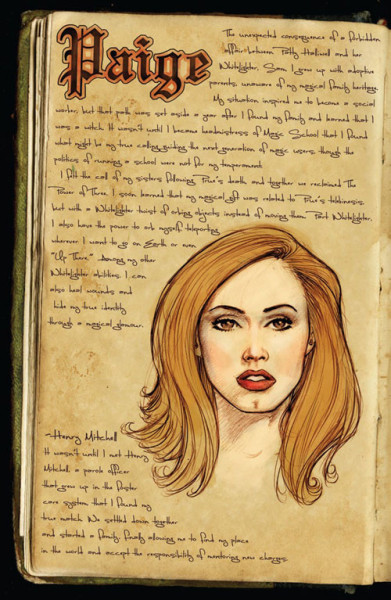 Paige
The unexpected consequence of a forbidden
affair between Patty Halliwell and her
Whitelighter, Sam, I grew up with adoptive
parents, unaware of my magical family heritage.
My situation inspired me to become a social
worker, but that path was set aside a year after I found my family and learned that I
was a witch. It wasn't until I became headmistress of Magic School that I found
what might be my true calling, guiding the next generation of magic users, though the
politics of running a school were not for my temperament.
I felt the call of my sisters following Prue's death and together we reclaimed The
Power of Three. I soon learned that my magical gift was related to Prue's telekinesis
but with a Whitelighter twist of orbing objects instead of moving them. Part Whitelighter,
I also have the power to orb myself, teleporting
wherever I want to go on Earth or even
"Up There." Among my other
Whitelighter abilities, I can
also heal wounds and
hide my true identity
through a magical glamour.
~Henry Mitchell
It wasn't until I met Henry
Mitchell, a parole officer
that grew up in the foster
care system, that I found my
true match. We settled down together
and started a family, finally allowing me to find my place
in the world and accept the responsibility of mentoring new charges.